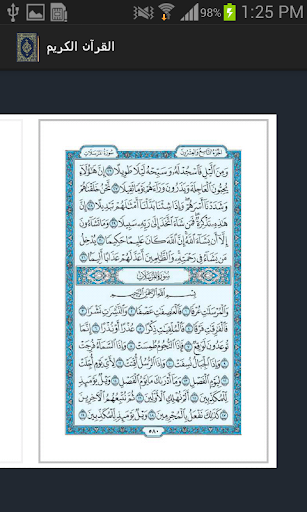 98% 1:25 PM
القرآن الكريم
الجزء التاسع والعشرين سورة المرسلات
وَمِنَ ٱلَّيْلِ فَٱسْجُدْ لَهُۥ وَسَبِّحْهُ لَيْلًا طَوِيلًا ٢٦ إِنَّ هَٰٓؤُلَآءِ
يُحِبُّونَ ٱلْعَاجِلَةَ وَيَذَرُونَ وَرَآءَهُمْ يَوْمًا ثَقِيلًا ٢٧ نَّحْنُ خَلَقْنَٰهُمْ
وَشَدَدْنَآ أَسْرَهُمْ وَإِذَا شِئْنَا بَدَّلْنَآ أَمْثَٰلَهُمْ تَبْدِيلًا ٢٨
إِنَّ هَٰذِهِۦ تَذْكِرَةٌ فَمَن شَآءَ ٱتَّخَذَ إِلَىٰ رَبِّهِۦ سَبِيلًا ٢٩ وَمَا تَشَآءُونَ
إِلَّآ أَن يَشَآءَ ٱللَّهُ إِنَّ ٱللَّهَ كَانَ عَلِيمًا حَكِيمًا ٣٠ يُدْخِلُ
مَن يَشَآءُ فِى رَحْمَتِهِۦ وَٱلظَّٰلِمِينَ أَعَدَّ لَهُمْ عَذَابًا أَلِيمًۢا ٣١
سورة المرسلات
بِسْمِ ٱللَّهِ ٱلرَّحْمَٰنِ ٱلرَّحِيمِ
وَٱلْمُرْسَلَٰتِ عُرْفًا ١ فَٱلْعَٰصِفَٰتِ عَصْفًا ٢ وَٱلنَّٰشِرَٰتِ نَشْرًا ٣
فَٱلْفَٰرِقَٰتِ فَرْقًا ٤ فَٱلْمُلْقِيَٰتِ ذِكْرًا ٥ عُذْرًا أَوْ نُذْرًا ٦ إِنَّمَا
تُوعَدُونَ لَوَٰقِعٌ ٧ فَإِذَا ٱلنُّجُومُ طُمِسَتْ ٨ وَإِذَا ٱلسَّمَآءُ فُرِجَتْ ٩
وَإِذَا ٱلْجِبَالُ نُسِفَتْ ١٠ وَإِذَا ٱلرُّسُلُ أُقِّتَتْ ١١ لِأَىِّ يَوْمٍ أُجِّلَتْ ١٢
لِيَوْمِ ٱلْفَصْلِ ١٣ وَمَآ أَدْرَىٰكَ مَا يَوْمُ ٱلْفَصْلِ ١٤ وَيْلٌ يَوْمَئِذٍ
لِّلْمُكَذِّبِينَ ١٥ أَلَمْ نُهْلِكِ ٱلْأَوَّلِينَ ١٦ ثُمَّ نُتْبِعُهُمُ ٱلْءَاخِرِينَ
١٧ كَذَٰلِكَ نَفْعَلُ بِٱلْمُجْرِمِينَ ١٨ وَيْلٌ يَوْمَئِذٍ لِّلْمُكَذِّبِينَ ١٩
٥٨٠